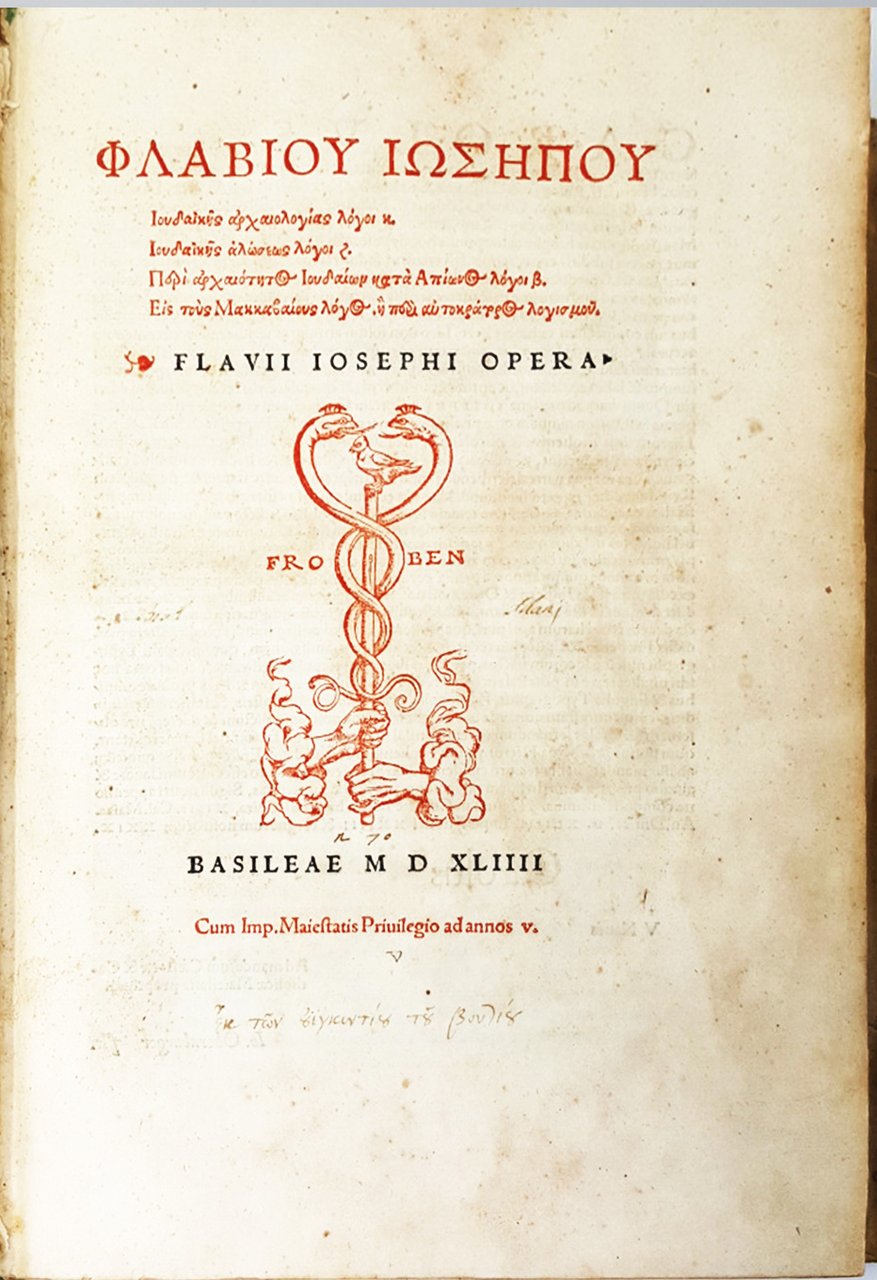 ΦΛΑΒΙΟΥ ΙΩΣΗΠΟΥ
Ιουδαϊκῆς ἀρχαιολογίας λόγοι κ.
Ιουδαϊκῆς ἁλώσεως λόγοι ζ.
Περὶ ἀρχαιότητος Ιουδαίων κατὰ Απίωνος λόγοι β.
Εἰς τοὺς Μακκαβαίους λόγος, ἢ περὶ αὐτοκράτορος λογισμοῦ.
FLAVII IOSEPHI OPERA
FRO BEN
BASILEAE M D XLIIII
Cum Imp. Maiestatis Priuilegio ad annos v.
τῶν τοῦ